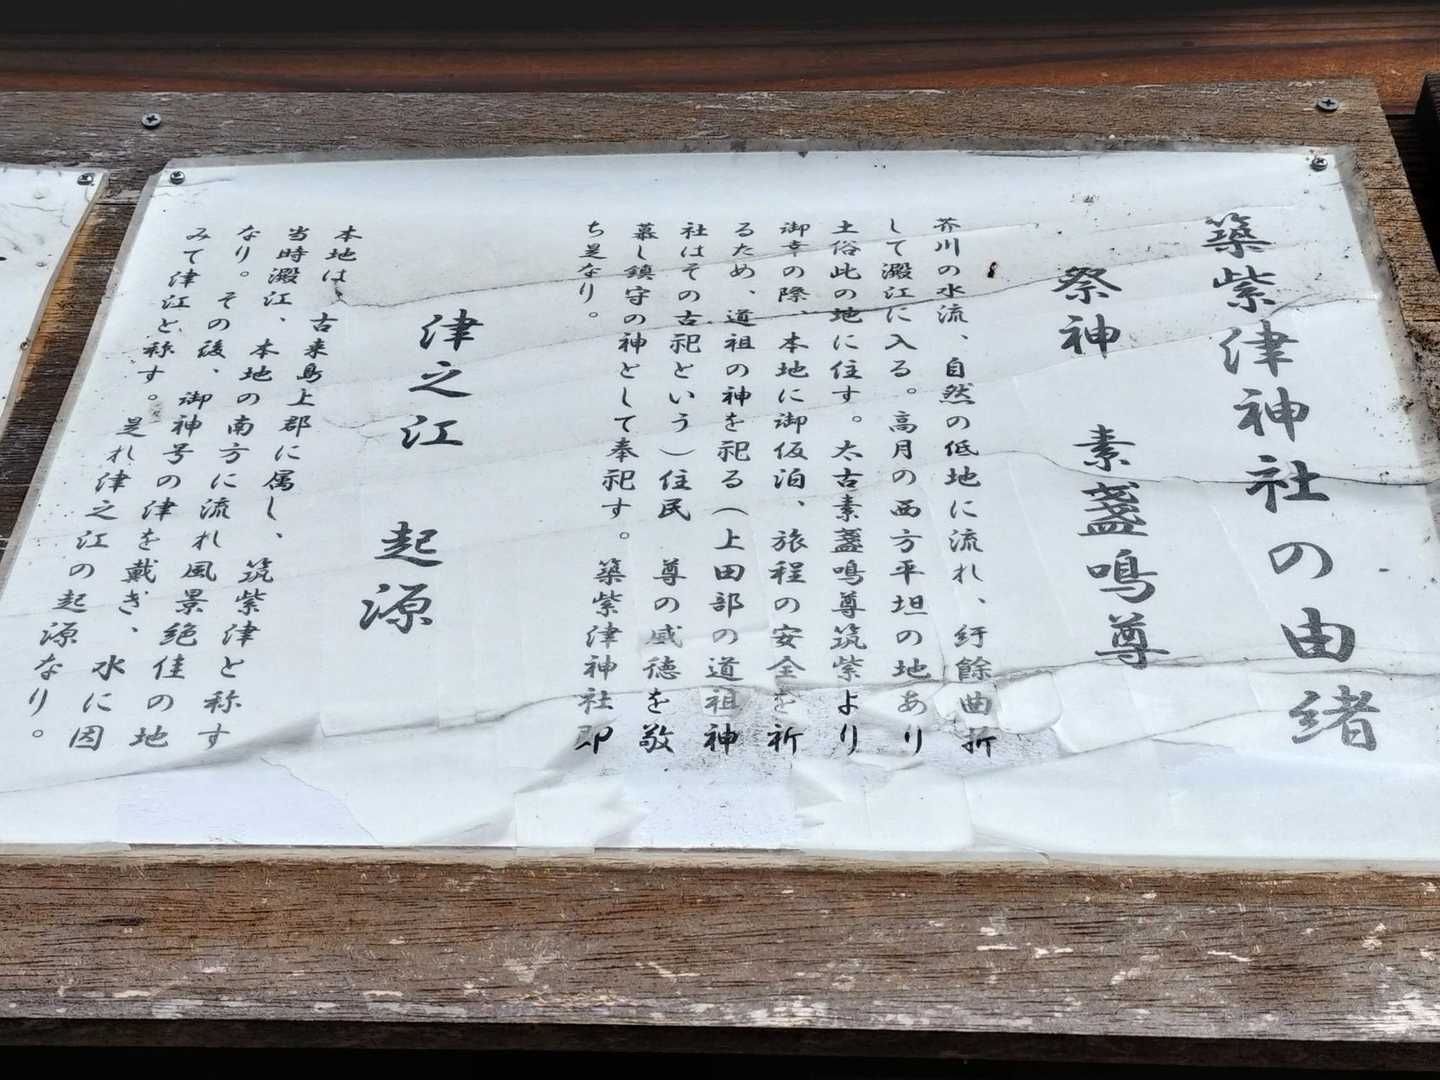 築紫津神社の由緒
祭神 素盞鳴尊
芥川の水流、自然の低地に流れ、紆餘曲折
して澱江に入る。高月の西方平坦の地あり
土俗此の地に住す。太古素盞鳴尊筑紫より
御幸の際、本地に御仮泊、旅程の安全を祈
るため、道祖の神を祀る（上田部の道祖神
社はその古祀という）住民 尊の威徳を敬
慕し鎮守の神として奉祀す。築紫津神社即
ち是なり。
津之江 起源
本地は、古来島上郡に属し、筑紫津と称す
当時澱江、本地の南方に流れ風景絶佳の地
なり。その後、御神号の津を戴ぎ、水に因
みて津江と称す。是れ津之江の起源なり。